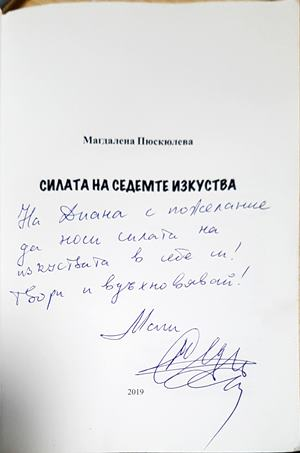 Магдалена Пюскюлева
СИЛАТА НА СЕДЕМТЕ ИЗКУСТВА
На Диана с пожелание
да носи силата на
изкуствата в себе си!
Твори и вдъхновявай!
Маги
2019